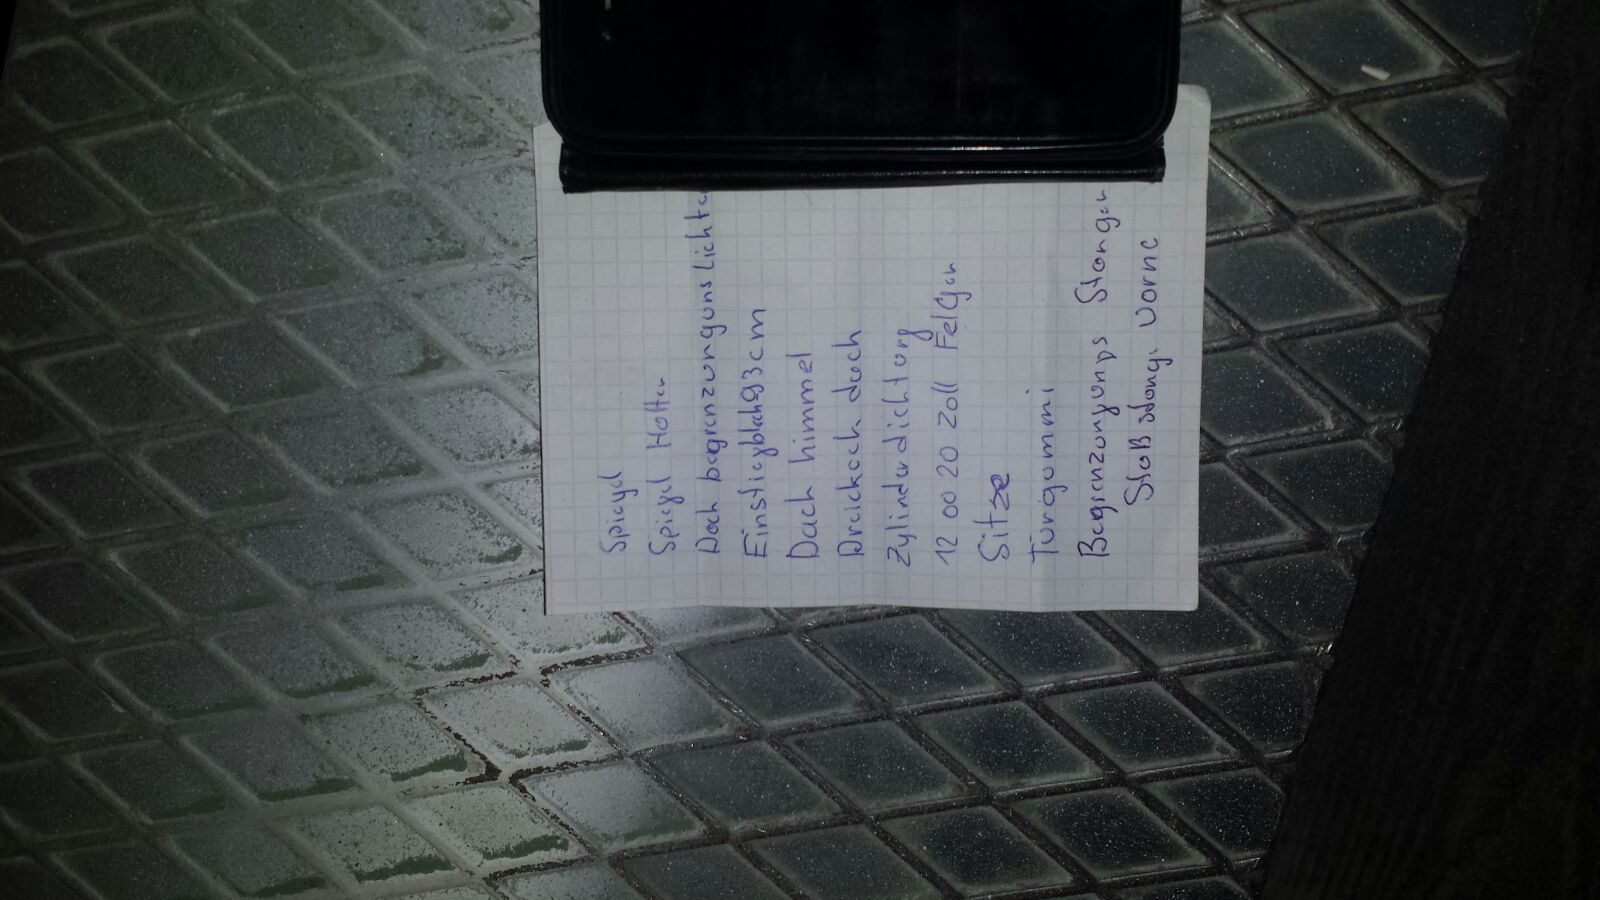 Spiegel
Spiegel Halter
Dach begrenzungunslichte
Einstiegblech 93cm
Dach himmel
Dreickech dach
Zylinderdichtung
12 00 20 zoll Felgen
Sitze
Türgummi
Begrenzungungs Stangen
Stoßstange vorne